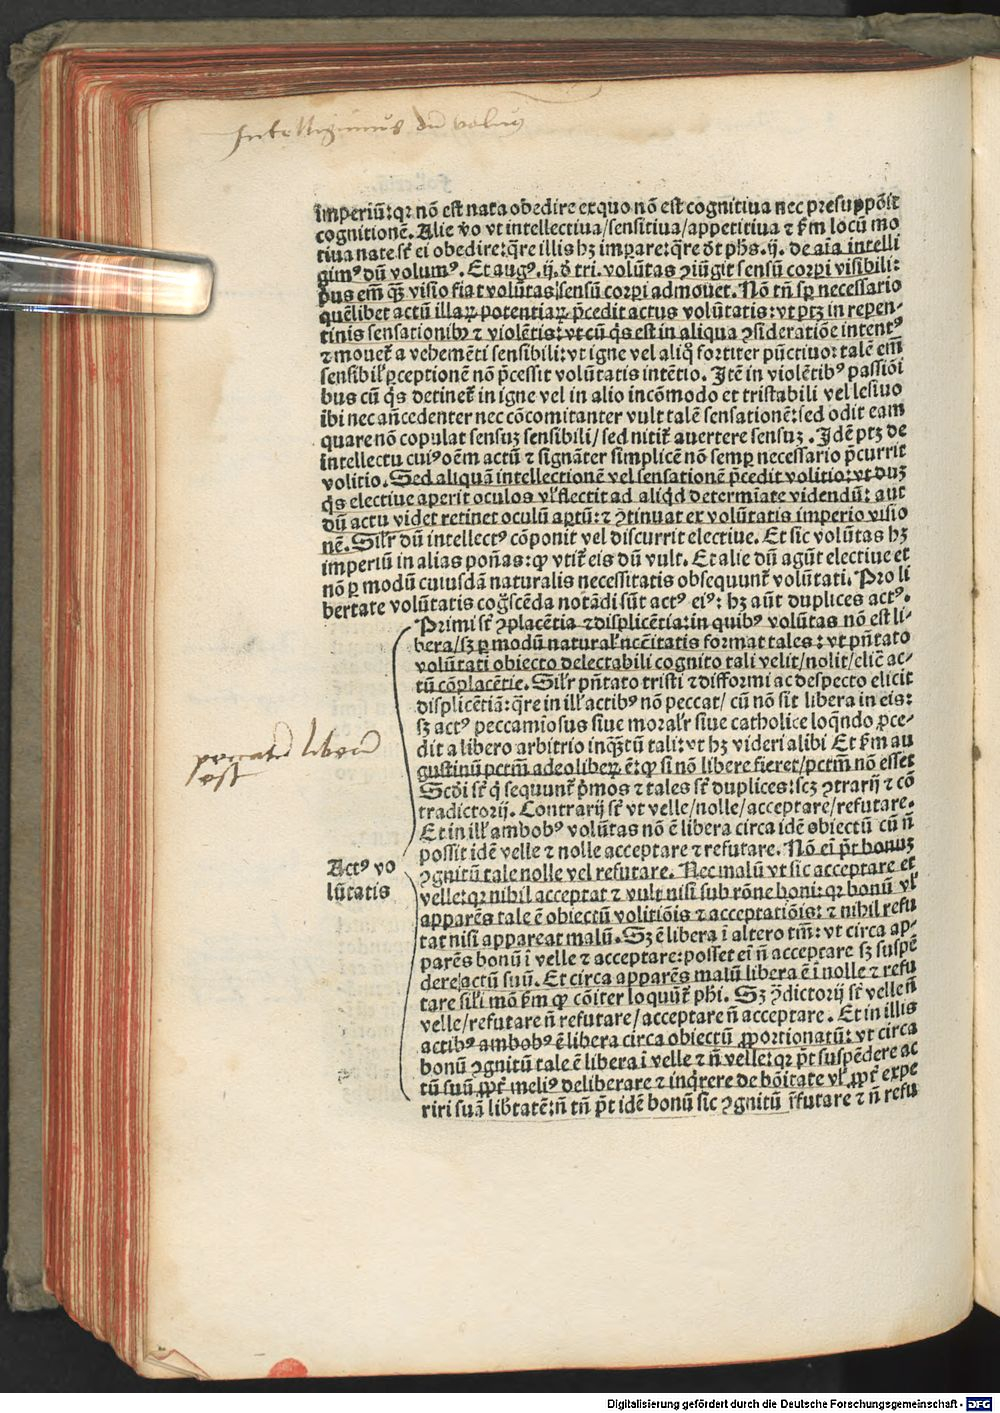 Intelligimus dū volum⁹
imperiū: qꝛ nō est nata obedire ex quo nō est cognitiua nec presuppōit
cognitionē. Alie v̄o vt intellectiua/sensitiua/appetitiua ⁊ ẜm locū mo
tiua nate sūt ei obedire: q̄re illis hꝫ imꝑare: q̄re dt̄ phs. ij. de aīa intelli
gim⁹ dū volum⁹. Et aug⁹. ij. d̄ tri. volūtas ꝯiūgit sensū corpi visibili:
pus em̄ qꝫ visio fiat volūtas sensū corpi admouet. Nō tn̄ sꝑ necessario
quēlibet actū illaꝝ potentiaꝝ p̄cedit actus volūtatis: vt ptꝫ in repen-
tinis sensationibꝫ ⁊ violētis: vt cū q̄s est in aliqua ꝯsideratiōe intent⁹
⁊ mouet̄ a vehemēti sensibili: vt igne vel aliq̊ fortiter pūctiuo: talē em̄
sensibil' ꝑceptionē nō p̄cessit volūtatis intētio. Itē in violētib⁹ passiōi
bus cū q̄s detinet̄ in igne vel in alio incōmodo et tristabili vel lesiuo
ibi nec an̄cedenter nec cōcomitanter vult talē sensationē: sed odit eam
quare nō copulat sensuꝫ sensibili/ sed nitit̄ auertere sensuꝫ. Idē ptꝫ de
intellectu cui⁹ oēm actū ⁊ signāter simplicē nō semꝑ necessario p̄currit
volitio. Sed aliquā intellectionē vel sensationē p̄cedit volitio: vt duꝫ
q̄s electiue aperit oculos vl' flectit ad aliq̄d determīate videndū: aut
dū actu videt retinet oculū aꝑtū: ⁊ ꝯtinuat ex volūtatis imperio visio
nē. Sil'r dū intellect⁹ cōponit vel discurrit electiue. Et sic volūtas hꝫ
imperiū in alias poñas: ꝙ vtit̄ eis dū vult. Et alie dū agūt electiue et
nō ꝑ modū cuiusdā naturalis necessitatis obsequunt̄ volūtati. Pro li
bertate volūtatis cog̊scēda notādi sūt act⁹ ei⁹: hꝫ aūt duplices act⁹.
Primi sūt ꝯplacētia ⁊ displicētia: in quib⁹ volūtas nō est li-
bera/ sꝫ ꝑ modū natural' nc̄citatis format tales: vt pn̄tato
volūtati obiecto delectabili cognito tali velit/nolit/elic̄ ac-
tū cōplacētie. Sil'r pn̄tato tristi ⁊ difformi ac despecto elicit
displicētiā: q̄re in ill' actib⁹ nō peccat/ cū nō sit libera in eis:
sꝫ act⁹ peccamiosus siue moral'r siue catholice loq̄ndo ꝓce-
dit a libero arbitrio inq̄ꝫtū tali: vt hꝫ videri alibi Et ẜm au
gustinū pctm̄ adeo liberꝝ ē: ꝙ si nō libere fieret/ pctm̄ nō esset
Scd̄i sūt q̇ sequunt̄ p̄mos ⁊ tales sūt duplices: scꝫ ꝯtrarij ⁊ cō
tradictorij. Contrarij sūt vt velle/nolle/acceptare/refutare.
Et in ill' ambob⁹ volūtas nō ē libera circa idē obiectū cū n̄
possit idē velle ⁊ nolle acceptare ⁊ refutare. Nō ei p̄t bonuꝫ
ꝯgnitū tale nolle vel refutare. Nec malū vt sic acceptare et
velle: qꝛ nihil acceptat ⁊ vult nisi sub rōne boni: qꝛ bonū vl'
apparēs tale ē obiectū volitiōis ⁊ acceptatiōis: ⁊ nihil refu
tat nisi appareat malū. Sꝫ ē libera ī altero tm̄: vt circa ap-
parēs bonū ī velle ⁊ acceptare: posset ei n̄ acceptare sꝫ suspē
dere actū suū. Et circa apparēs malū libera ē ī nolle ⁊ refu
tare sil'i mō ẜm ꝙ cōiter loquūt̄ phi. Sꝫ ꝯdictorij sūt velle n̄
velle/refutare n̄ refutare/acceptare n̄ acceptare. Et in illis
actib⁹ ambob⁹ ē libera circa obiectū ꝓportionatū: vt circa
bonū ꝯgnitū tale ē libera ī velle ⁊ n̄ velle: qꝛ p̄t suspēdere ac
tū suū ꝓpt̄ meli⁹ deliberare ⁊ inq̇rere de bōitate vl' ꝓpt̄ expe
riri suā lib̄tatē: n̄ tn̄ p̄t idē bonū sic ꝯgnitū r̄futare ⁊ n̄ refu
peccatū liberū
est
Act⁹ vo
lūtatis
Digitalisierung gefördert durch die Deutsche Forschungsgemeinschaft - DFG